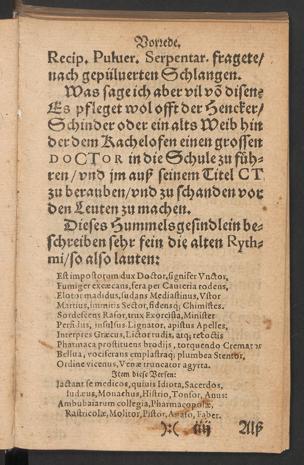 Vorrede.
Recip. Puluer. Serpentar. fragete/
nach gepüluerten Schlangen.
Was sage ich aber vil võ disen?
Es pfleget wol offt der Hencker/
Schinder oder ein alts Weib hin
der dem Kachelofen einen grossen
DOCTOR in die Schule zu füh-
ren/ vnd jm auß seinem Titel CT
zu berauben/ vnd zu schanden vor
den Leuten zu machen.
Dieses Hummelsgesindlein be-
schreiben sehr fein die alten Ryth-
mi/ so also lauten:
Est impostorum dux Doctor, signifer Vnctor,
Fumiger excæcans, fera per Cauteria rodens,
Elotor madidus, sudans Mediastinus, Vstor
Martius, immitis Sector, fidensq; Chimistes.
Sordefcens Rasor, trux Exorcista, Minister
insulsus Lignator, apistus Apelles,
Interpres Græcus, Lictor rudis, atq; retoctis
Pharmaca prostituens brodiis, torquendo
Bellua, vociferans emplastraq; plumbea Stentor,
Ordine vicenus, Venæ truncator agyrta.
Item diese Versen:
Iactant se medicos, quiuis Idiota, Sacerdos,
Iudæus, Monachus, Histrio, Tonsor, Anus:
Ambubaiarum collegia, Pharmacopolæ,
Rastricolæ, Molitor, Pistor, Faber.
):( iiij Alß